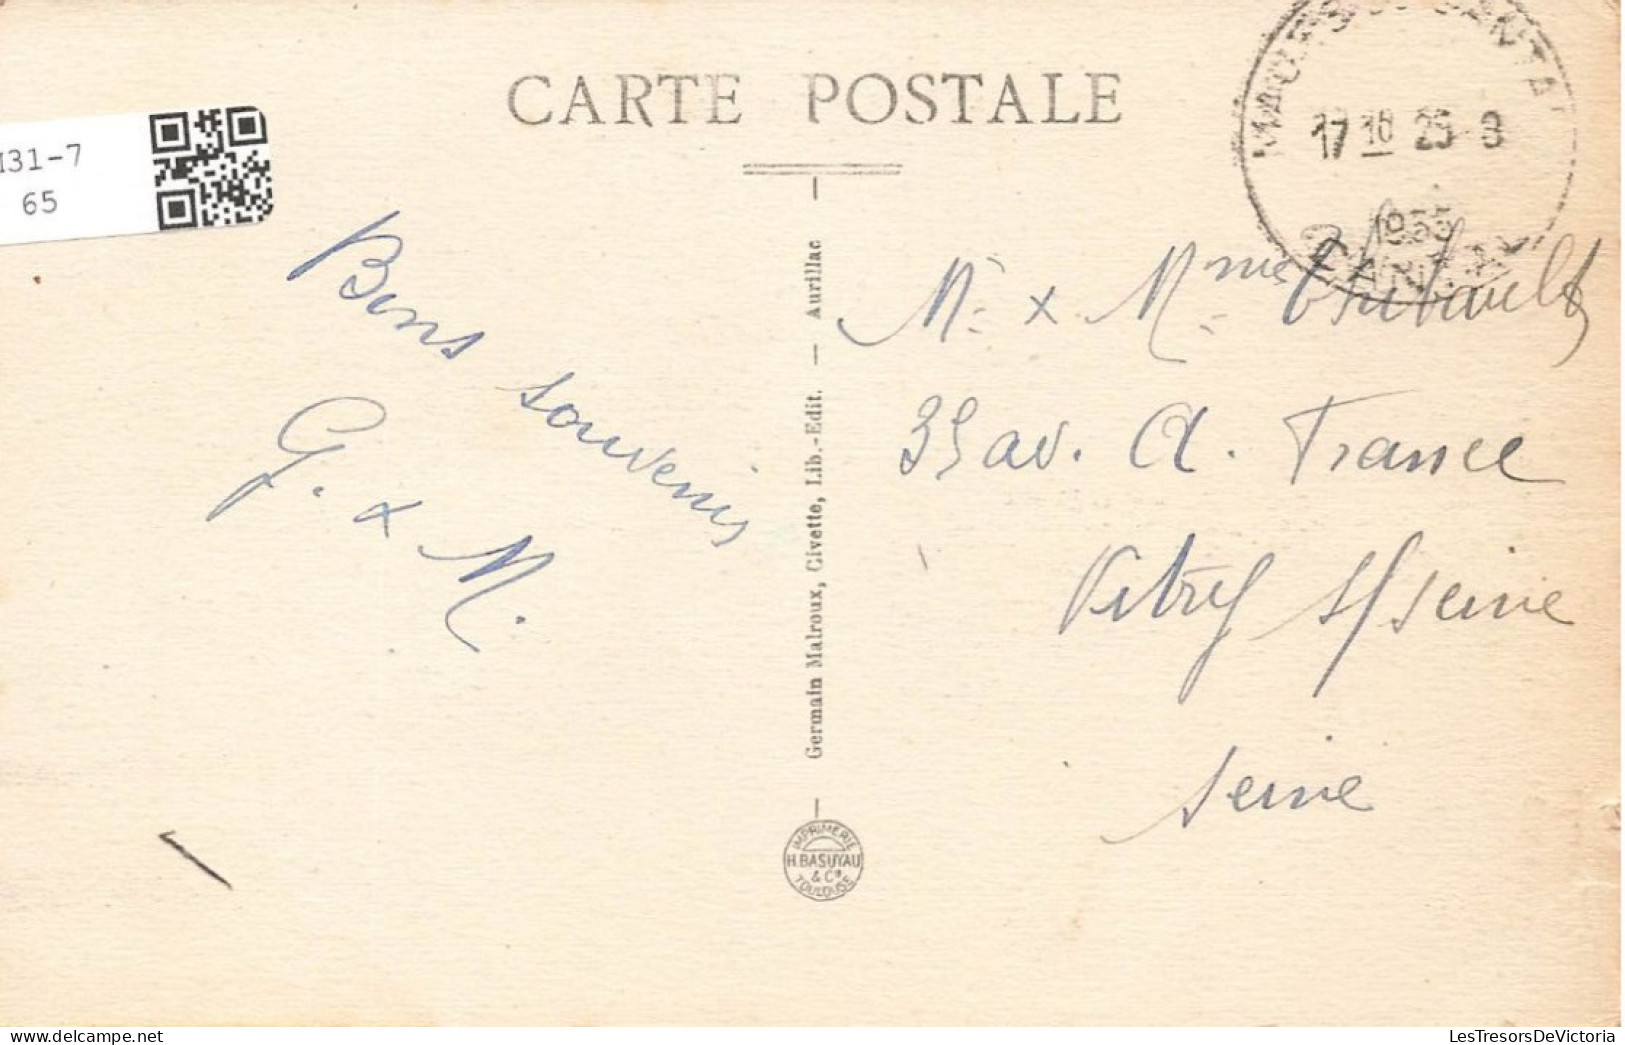 CARTE POSTALE
M31-7
65
17 10 25-8
1935
CANTAL
Bons souvenirs
G. & M.
Germain Malroux, Civette, Lib.-Edit. — Aurillac
M. x Mme Thibault
35 av. A. France
Vitry s/Seine
Seine
IMPRIMERIE
H. BASUYAU
& Cie
TOULOUSE
LesTresorsDeVictoria